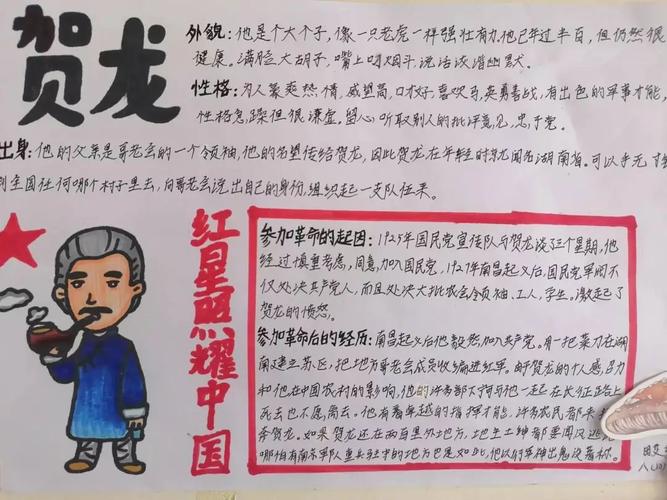 贺龙
外貌:他是个大个子,像一只老虎一样强壮有力,他已年过半百,但仍然很
健康。满脸大胡子,嘴上叼烟斗,说话诙谐幽默。
性格:为人豪爽热情,威望高,口才好,喜欢马,英勇善战,有出色的军事才能,
性格急躁但很谦虚。留心听取别人的批评意见,忠于党。
出身:他的父亲是哥老会的一个领袖,他的名望传给贺龙,因此贺龙在年轻时就闻名湖南省。可以手无寸
到全国任何哪个村子里去,向哥老会说出自己的身份,组织起一支队伍来。
红星照耀中国
参加革命的起因:1925年国民党宣传队与贺龙谈了三个星期,他
经过慎重考虑,同意加入国民党,1927年南昌起义后,国民党军阀不
仅处决共产党人,而且处决大批农会领袖、工人,学生。激起了
贺龙的愤怒。
参加革命后的经历:南昌起义后他毅然加入共产党。有一把菜刀在湖
南建立苏区,把地方哥老会成员收编进红军。由于贺龙的个人感召力
和他在中国农村的影响,他的许多部下宁可与他一起在长征路上
死去也不愿离去。他有着卓越的指挥才能,许多农民都来
奔贺龙。如果贺龙还在两百里外地方,地主土绅都要闻风逃
哪怕有南京军队重兵驻守的地方也是如此,他以行军神出鬼没著称。